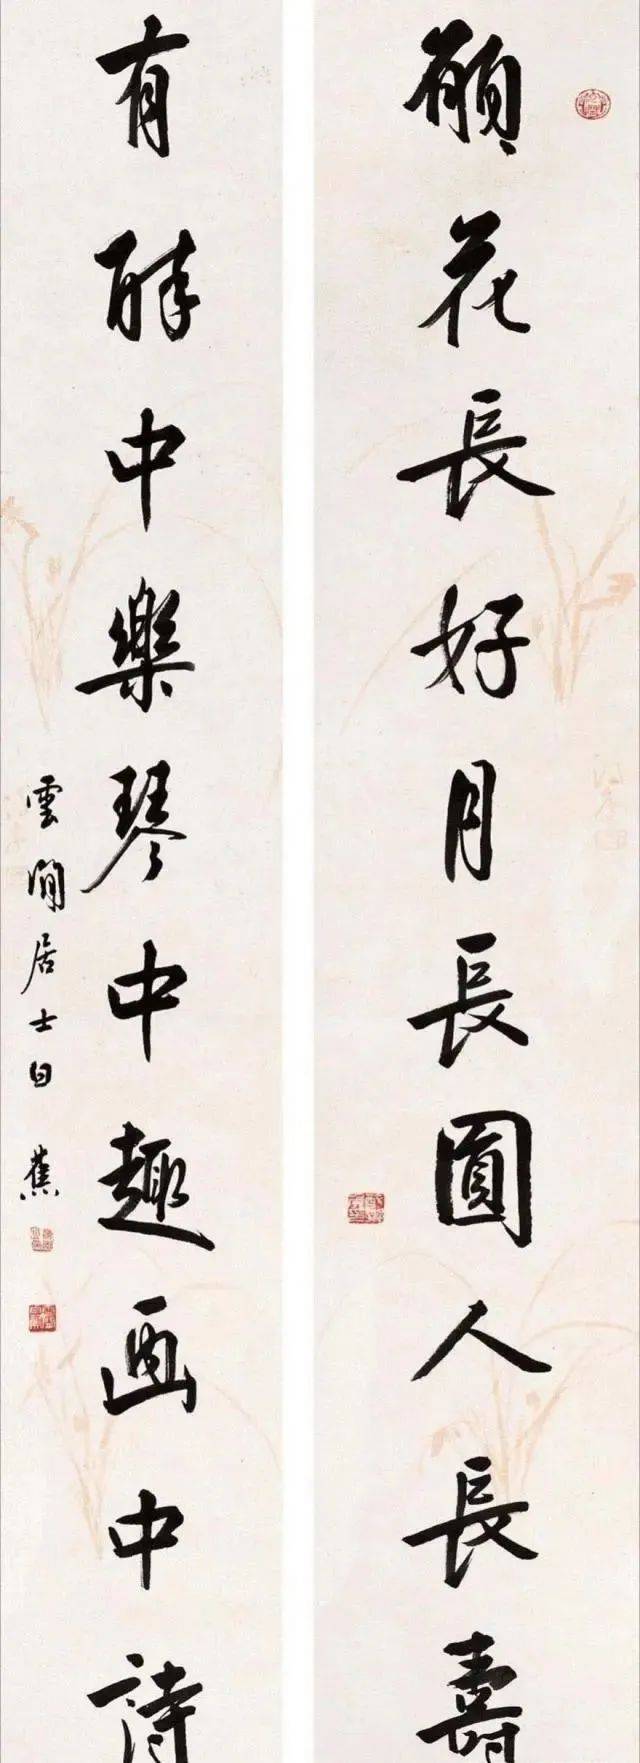 願花長好月長圓人長壽
有醉中樂琴中趣画中詩
雲間居士白蕉